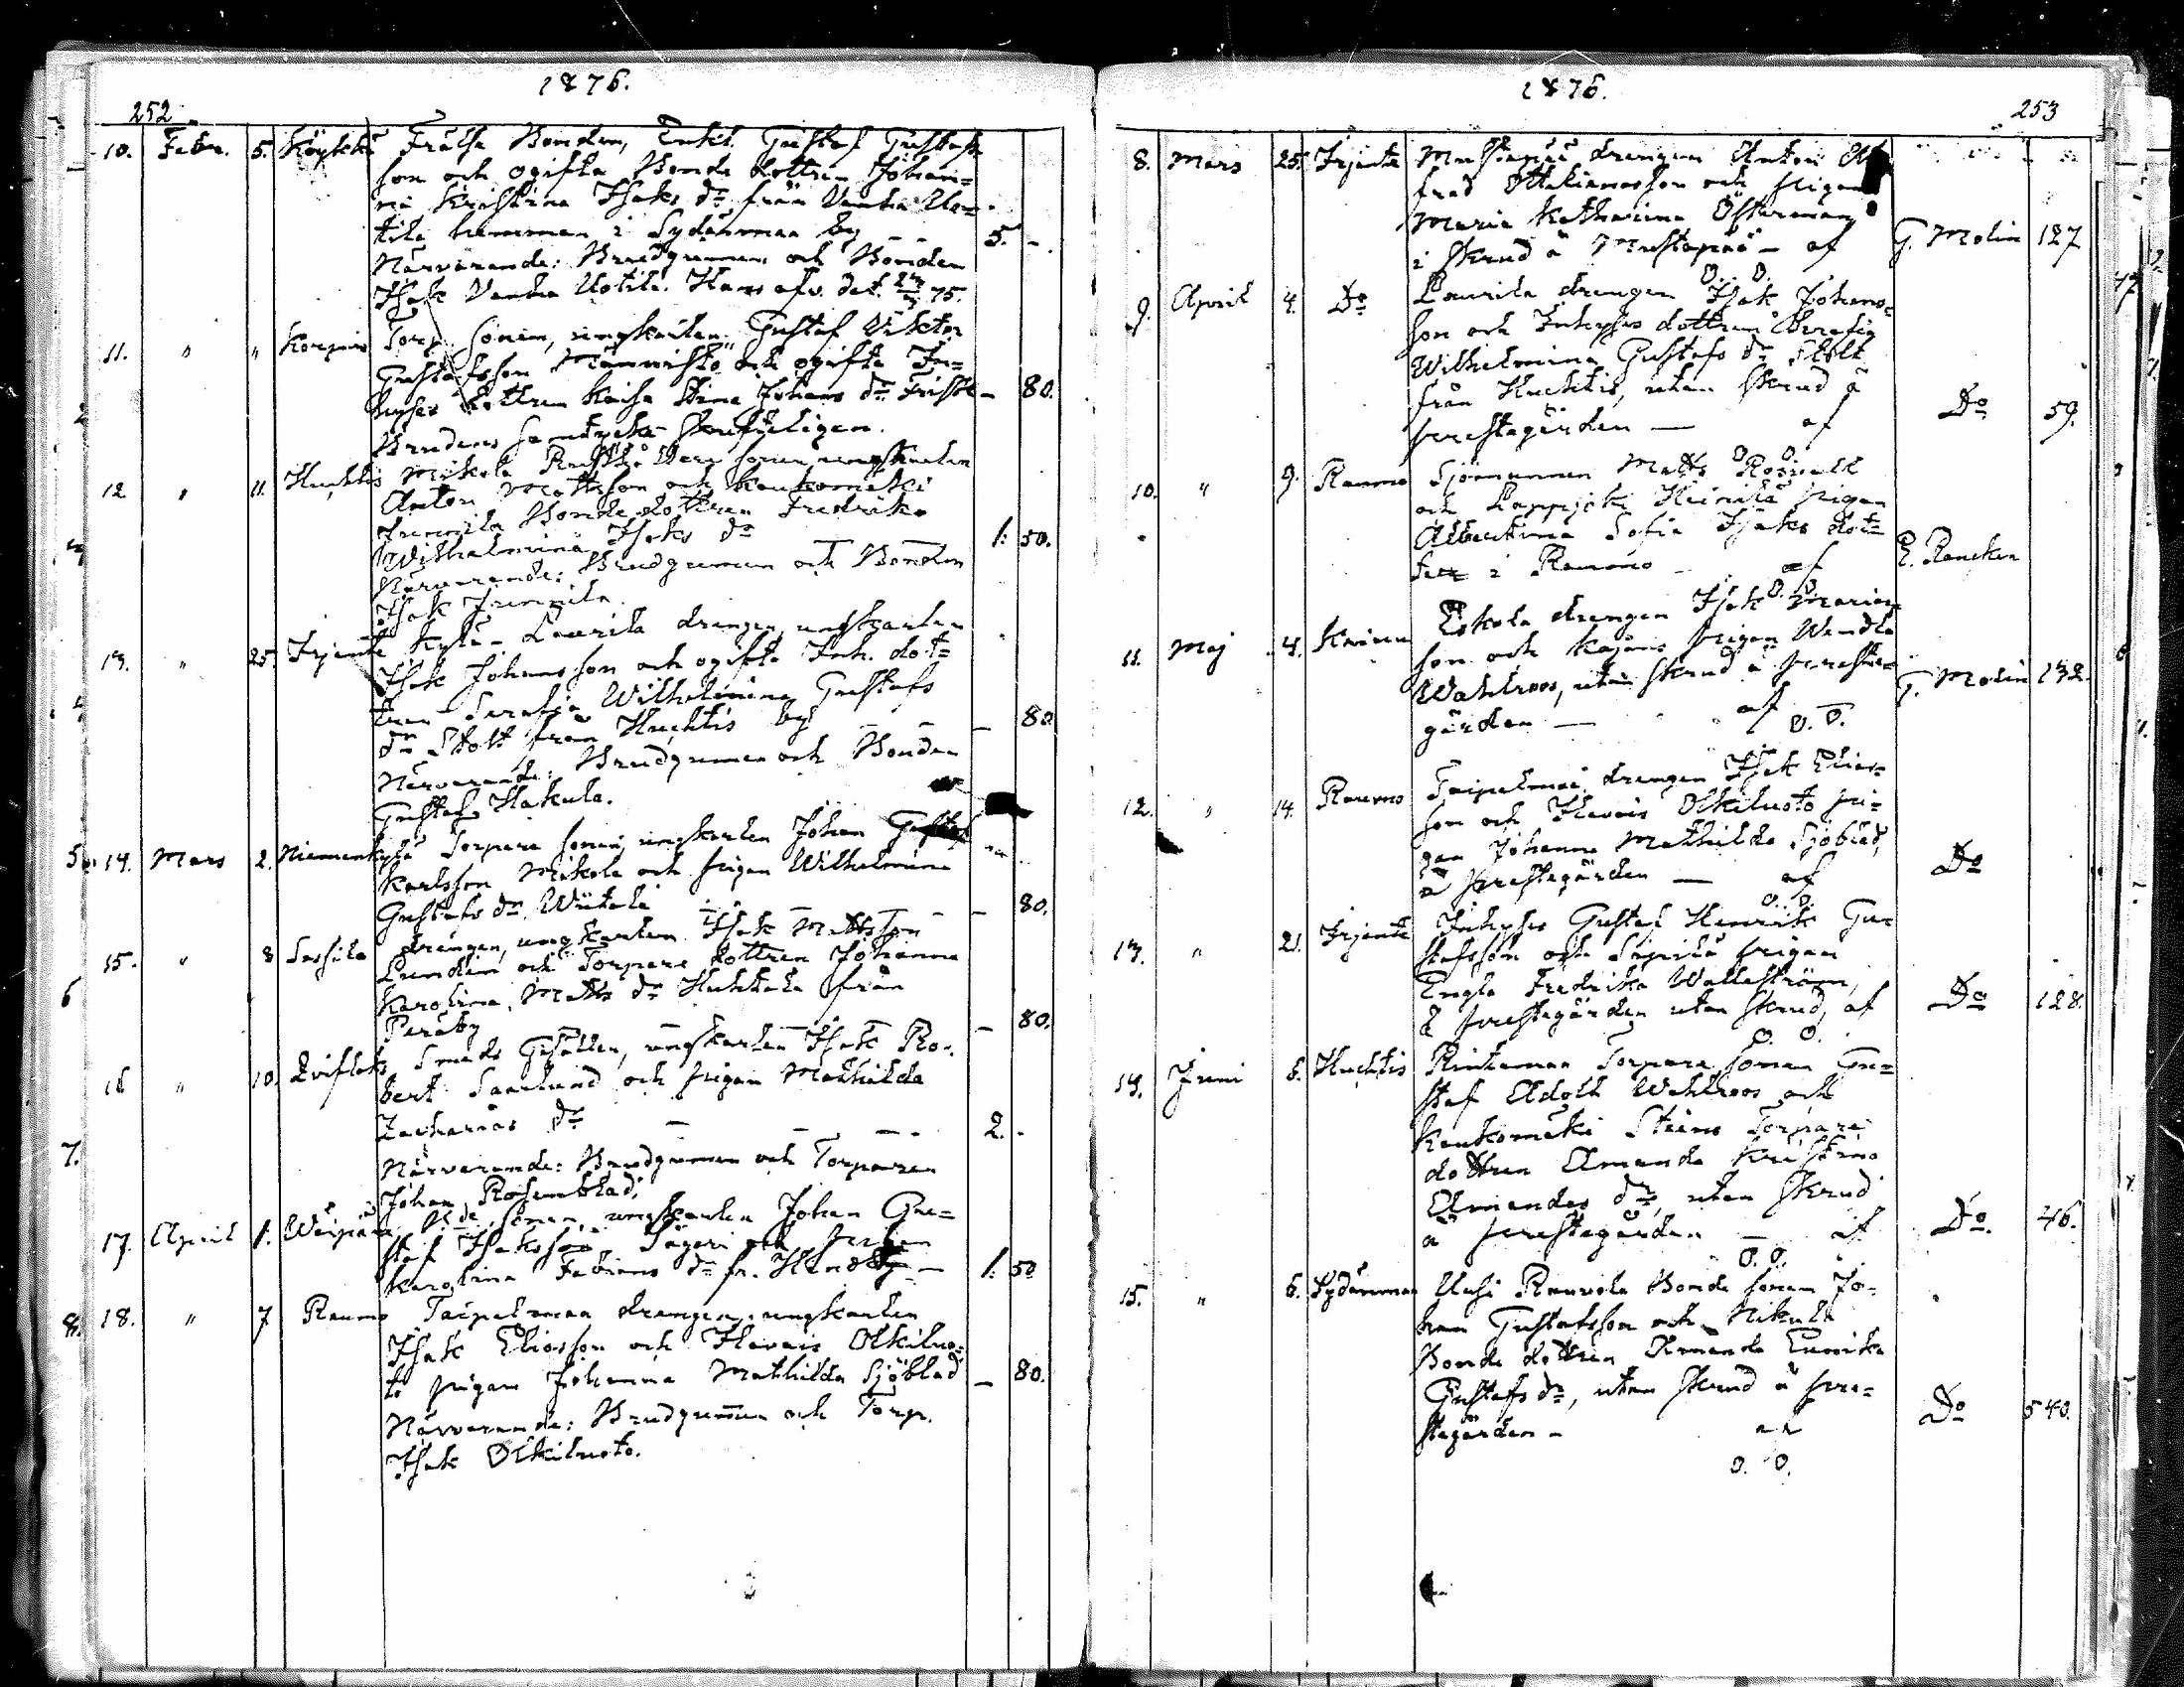 1876.
252
10. Febr. 5. Köykkä Frälse Bonden, Enkl. Gustaf Gustafs
son och ogifta Bonde dottren Johan=
na Kristina Isaks dr från Vanha Uo=
tila hemman i Sydänmaa by _ _ 5. -
Närvarande: Brudgummen och Bonden
Isak Vanha Uotila.
11. " " Torp. sonen, ungkarlen Gustaf Viktor
Gustafsson Männistö och ogifta In=
hyses dottren Kaisa Stina Johans dr _ 80.
Brudens samtycke skrifteligen.
12 " 11. Huchtis Mikola
Anton Mattsson och Kaukomäki
Junnila Bonde dottren Fredrika
Wilhelmina Isaks dr 1: 50.
Närvarande: Brudgummen och Bonden
Isak Junnila.
13. " 25. Irjante Kylä-Laurila drengen, ungkarlen
Isak Johansson och ogifta Inh. dot=
tren Serafia Wilhelmina Gustafs
dr Stolt från Huchtis by _ _ _ 80
Närvarande: Brudgummen och Bonden
Gustaf Hakula.
14. Mars 2. Niemenkylä Torpare sonen, ungkarlen Johan Gustaf
Karlsson Mikola och pigan Wilhelmina
Gustafs dr _ _ _ _ _ 80.
15. " 8 Sassila drengen, ungkarlen Isak Mattsson
Lundin och Torpare dottren Johanna
Karolina Matts dr Huhtala från
Peräby _ _ _ _ 80.
16 " 10. Qviflaks Smeds Gesällen, ungkarlen Isak Ro=
bert Samlund och pigan Mathilda
Zacharias dr _ _ _ 2. -
Närvarande: Brudgummen och Torparen
Johan Rosenblad.
17. April 1. Bde sonen, ungkarlen Johan Gu=
staf Isaksson och
Karolina Fabians dr fr. _ 1: 50
18. " 7 Raumo Taipalmaa drengen, ungkarlen
Isak Eliasson och Havais Olkiluo=
to pigan Johanna Mathilda Sjöblad _ 80.
Närvarande: Brudgummen och Torp.
Isak Olkiluoto.
1876.
253
8. Mars 25. Irjante Mustapää drengen Anton
och pigan
Maria Katharina Österman
i skrud å Mustapää - af G. Molin 127
O. O.
9. April 4. Do Laurila drengen Isak Johans=
son och Inhyses dottren Serafia
Wilhelmina Gustafs dr Stolt
från Huchtis, utan skrud å
prestegården — af Do 59.
O. O.
10. " 9. Raumo Sjömannen Matts
och Lappjoki Heinilä pigan
Albertina Sofia Isaks dot=
ter i Raumo - af E. Rancken
O. O.
11. Maj 4. Eskola drengen Isak
son och pigan Wendla
Wahlroos, utan skrud å preste=
gården — af G. Molin 132.
O. O.
12. " 14. Raumo Taipalmaa drengen Isak Elias=
son och Havais Olkiluoto pi=
gan Johanna Mathilda Sjöblad,
å prestegården — af Do
O. O.
13. " 21. Irjante Inhyses Gustaf Henrik Gu=
stafsson och pigan
Engla Fredrika Wallström,
å prestegården utan skrud, af Do 128.
O. O.
14. Juni 5. Huchtis Rintamaa Torpare sonen Gu=
staf Adolf Wahlroos och
Kaukomäki Torpare
dottren Amanda Kristina
Amandas dr, utan skrud
å prestegården — af Do. 46.
O. O.
15. " 6. Sydänmaa Uusi Rauvola Bonde sonen Jo=
han Gustafsson och Nikula
Bonde dottren Amanda
Gustafs dr, utan skrud å pre=
stegården - af Do 540.
O. O.